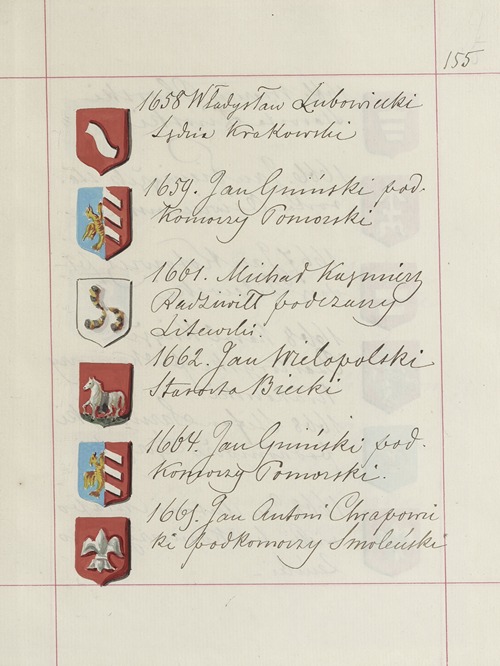 155
1658 Władysław Lubowiecki
Sędzia Krakowski
1659. Jan Gniński pod-
Komorzy Pomorski
1661. Michał Kazmierz
Radziwiłł podczaszy
Litewski.
1662. Jan Wielopolski
Starosta Biecki
1664. Jan Gniński pod-
Komorzy Pomorski.
1665. Jan Antoni Chrapowic
ki podkomorzy Smoleński